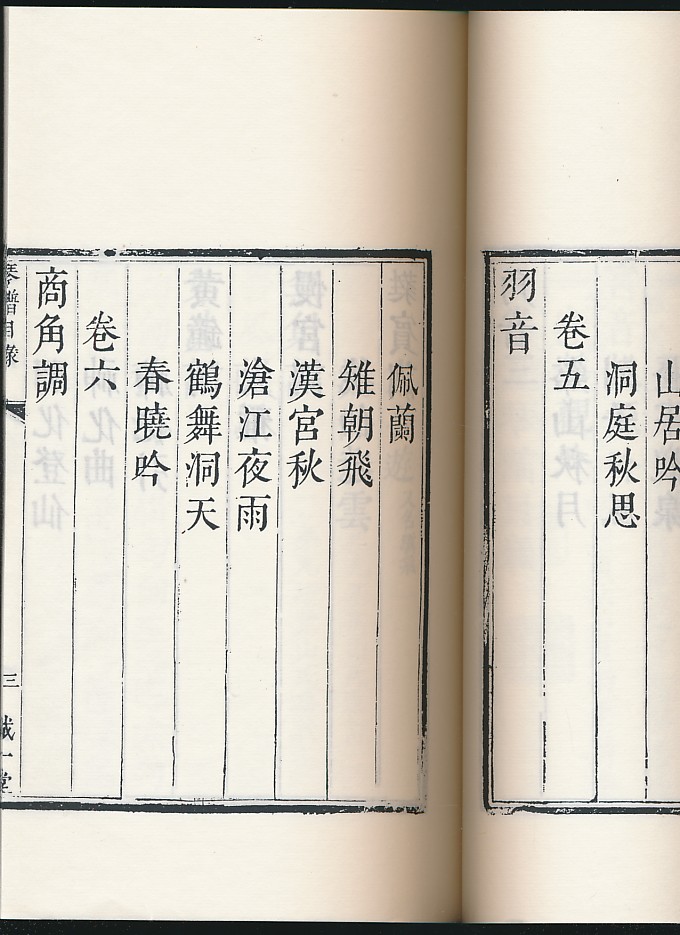 山居吟
洞庭秋思
卷五
羽音
佩蘭
雉朝飛
漢宮秋
滄江夜雨
鶴舞洞天
春曉吟
卷六
商角調
琴譜目錄
三
誠一堂